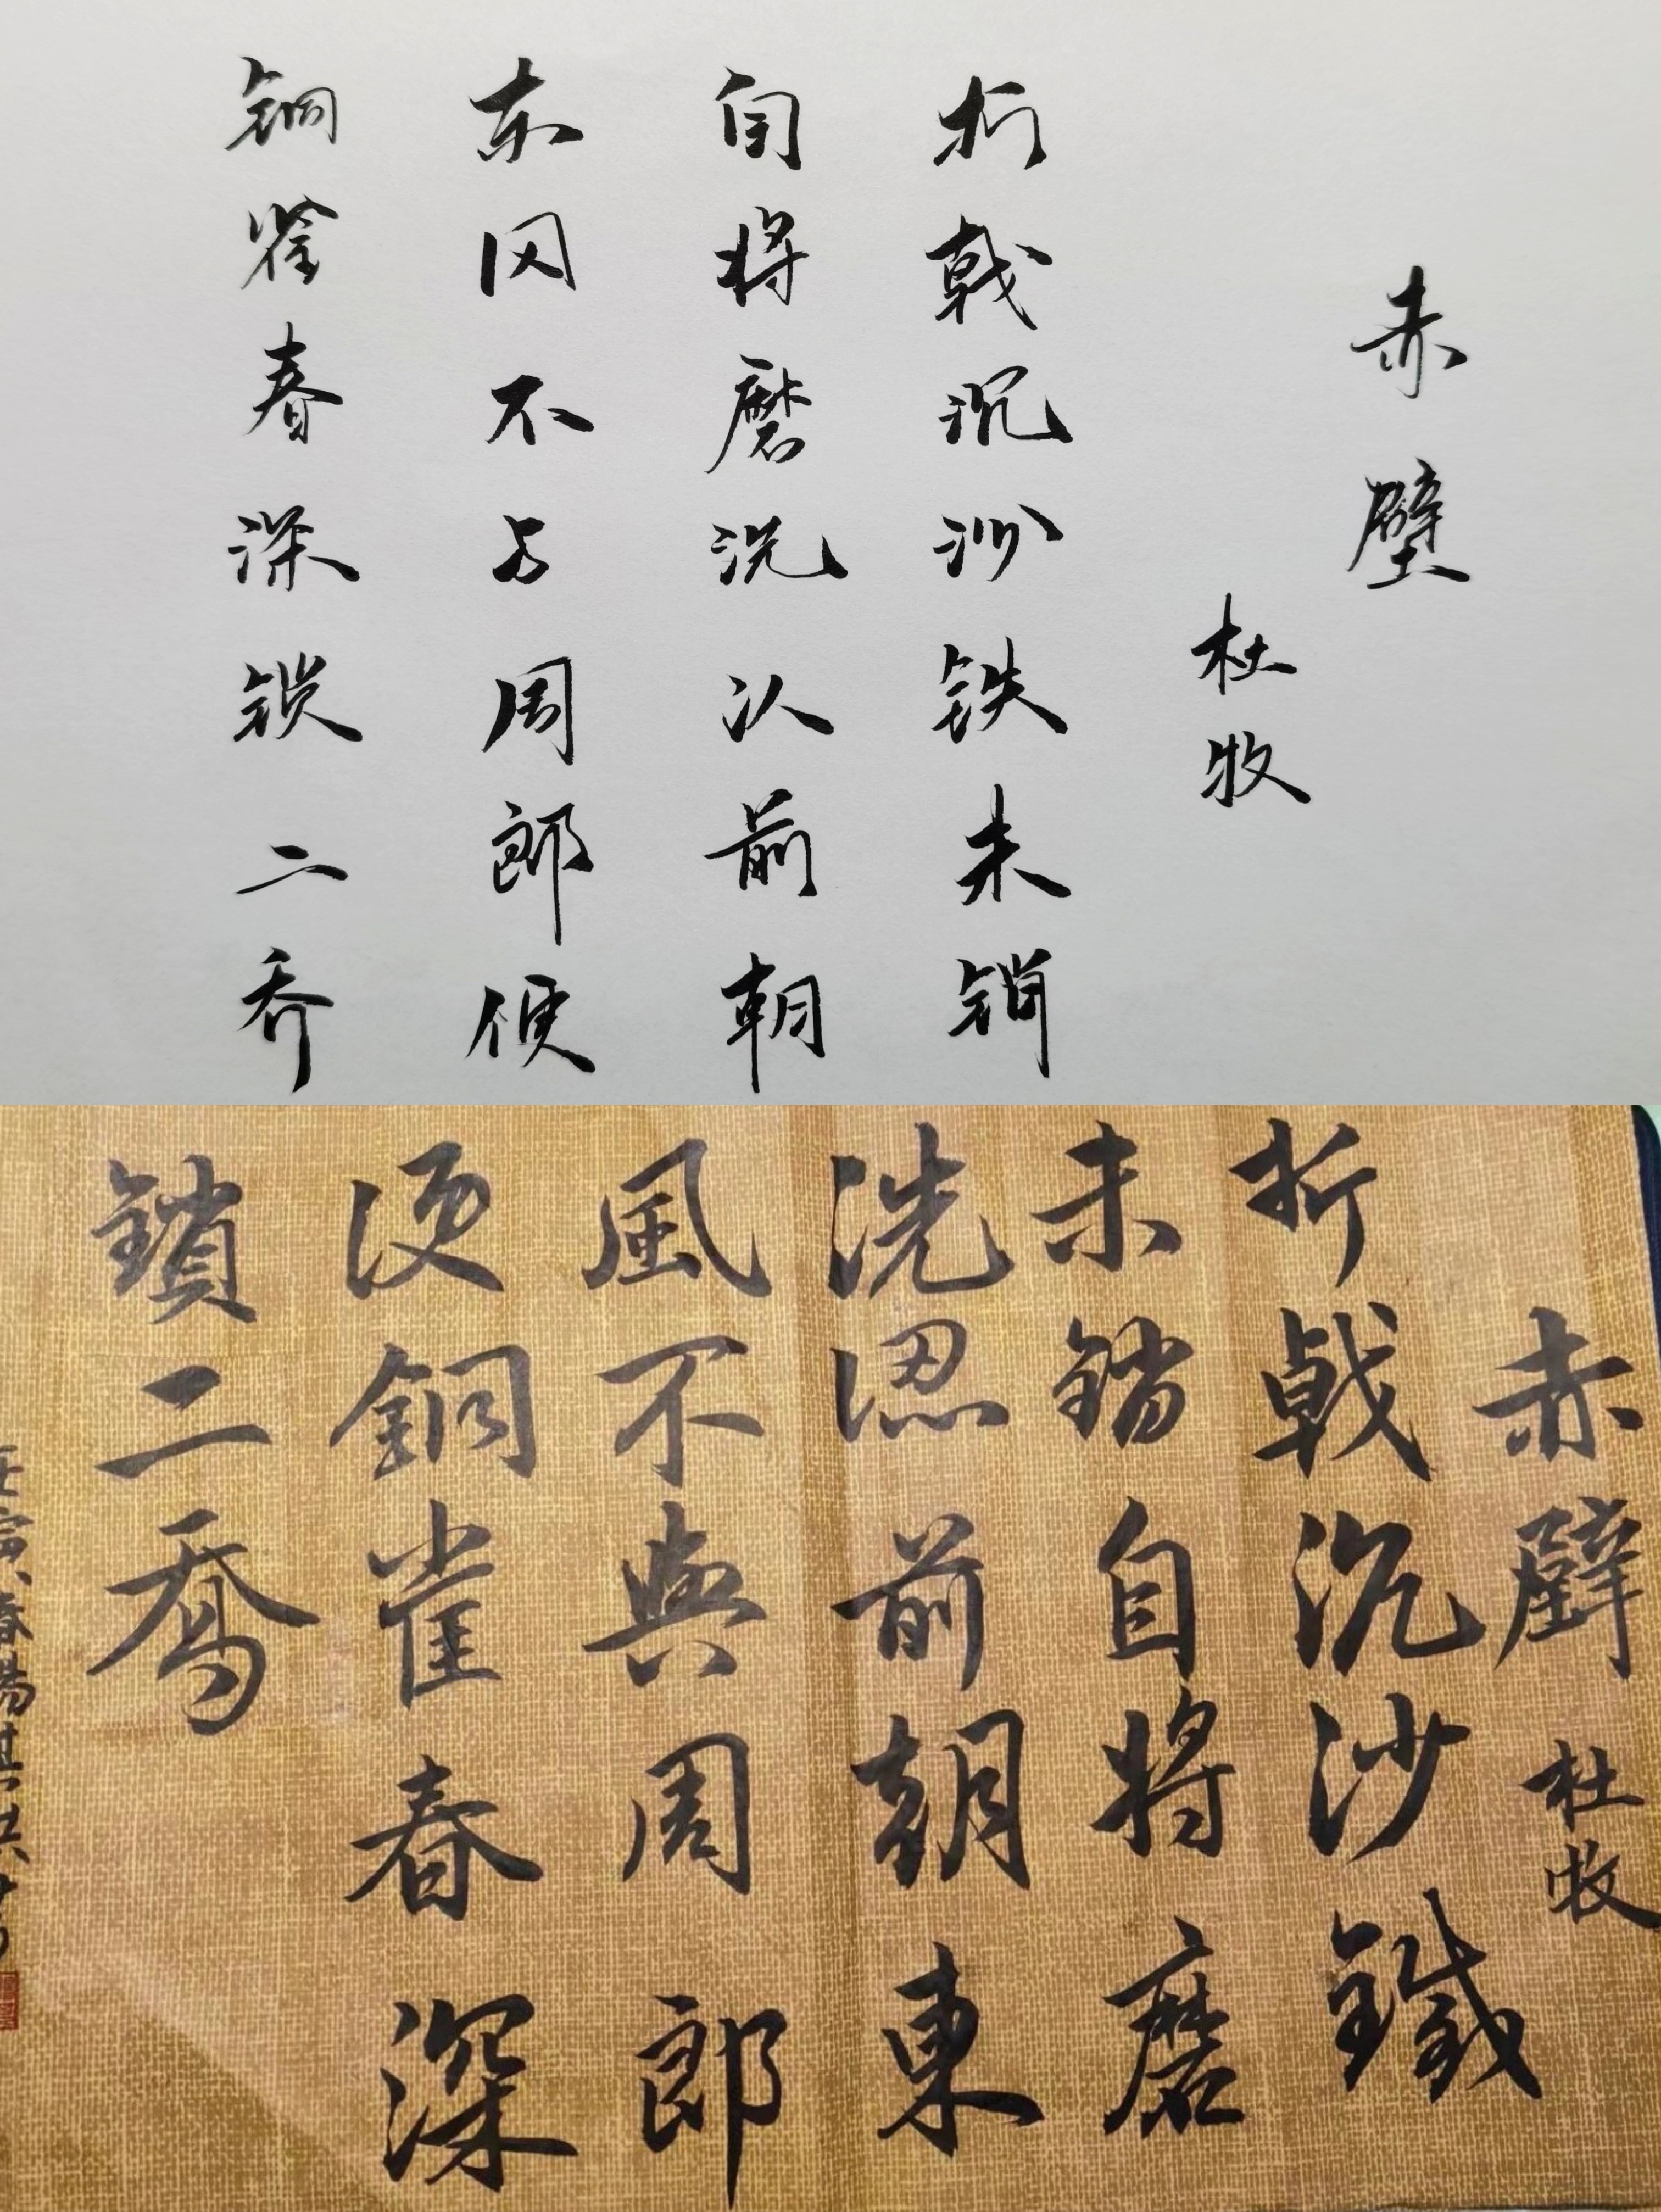 赤壁
杜牧
折戟沉沙铁未销
自将磨洗认前朝
东风不与周郎便
铜雀春深锁二乔
赤壁
杜牧
折戟沉沙鐵
未銷自將磨
洗認前朝東
風不與周郎
便銅雀春深
鎖二喬